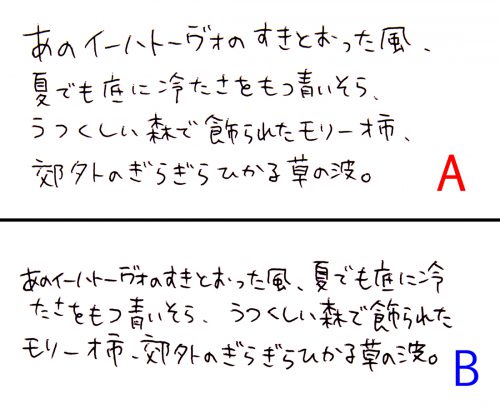 あのイーハトーヴォのすきとおった風、
夏でも底に冷たさをもつ青いそら、
うつくしい森で飾られたモリーオ市、
郊外のぎらぎらひかる草の波。
A
あのイーハトーヴォのすきとおった風、夏でも底に冷
たさをもつ青いそら、うつくしい森で飾られた
モリーオ市、郊外のぎらぎらひかる草の波。
B